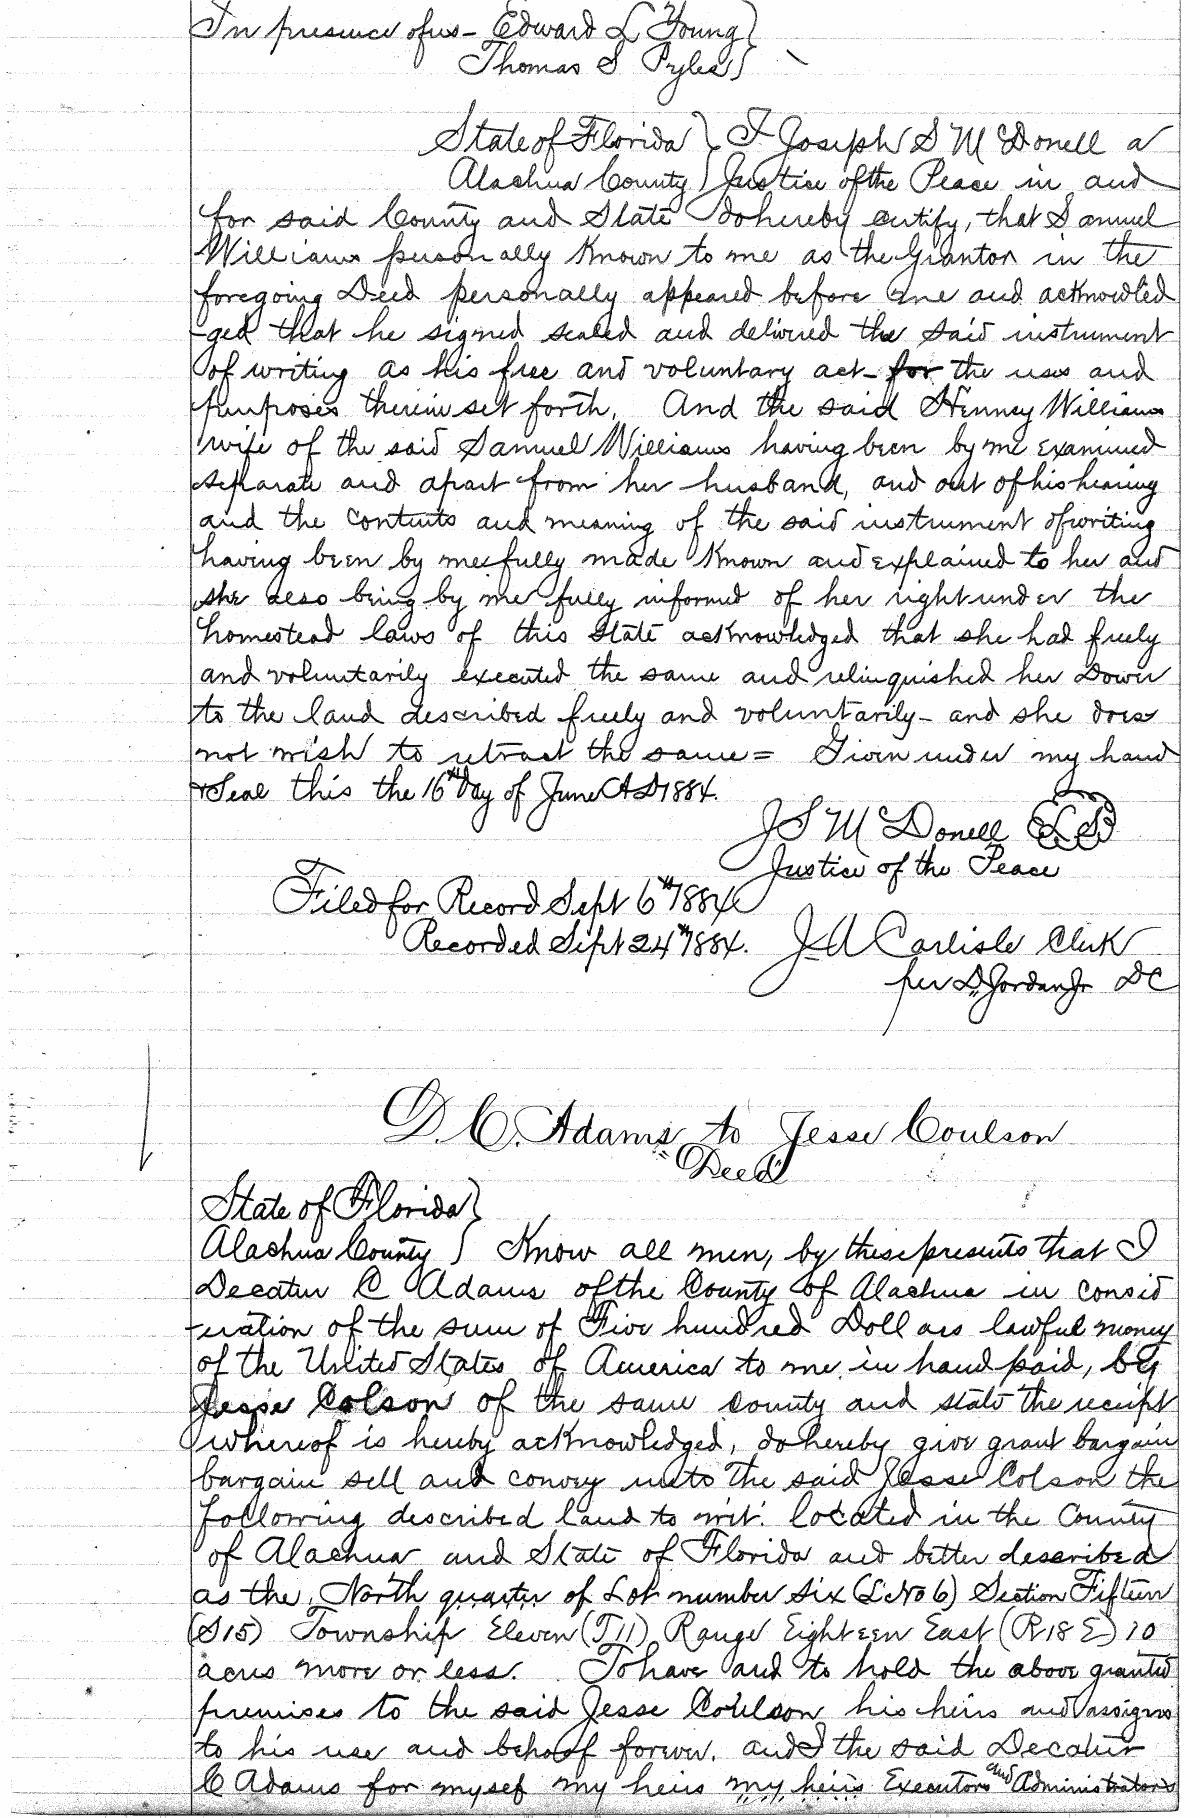 In presence of us - Edward L Young }
Thomas S Pyles }
State of Florida } I Joseph S McDonell a
Alachua County } Justice of the Peace in and
for said County and State do hereby certify, that Samuel
Williams personally Known to me as the Grantor in the
foregoing Deed personally appeared before me and acknowled
-ged that he signed sealed and delivered the said instrument
of writing as his free and voluntary act - for the uses and
purposes therein set forth, And the said Henney Williams
wife of the said Samuel Williams having been by me Examined
separate and apart from her husband, and out of his hearing
and the contents and meaning of the said instrument of writing
having been by me fully made Known and explained to her and
she also being by me fully informed of her right under the
homestead laws of this State acknowledged that she had freely
and voluntarily executed the same and relinquished her Dower
to the land described freely and voluntarily - and she does
not wish to retract the same = Given under my hand
+ Seal this the 16th Day of June AD 1884.
J S McDonell LS
Justice of the Peace
Filed for Record Sept 6th 1884
Recorded Sept 24th 1884. J A Carlisle Clerk
per D. Jordan Jr DC
D. C. Adams to Jesse Coulson
"Deed"
State of Florida }
Alachua County } Know all men, by these presents that I
Decatur C Adams of the County of Alachua in consid
-eration of the sum of Five hundred Dollars lawful money
of the United States of America to me in hand paid, by
Jesse Colson of the same county and state the receipt
whereof is hereby acknowledged, do hereby give grant bargain
bargain sell and convey unto the said Jesse Colson the
following described land to wit: located in the County
of Alachua and State of Florida and better described
as the North quarter of Lot number six (L No 6) Section Fifteen
(S 15) Township Eleven (T 11) Range Eighteen East (R 18 E) 10
acres more or less. To have and to hold the above granted
premises to the said Jesse Coulson his heirs and assigns
to his use and behoof forever. and I the said Decatur
C Adams for myself my heirs my heirs Executors and Administrators